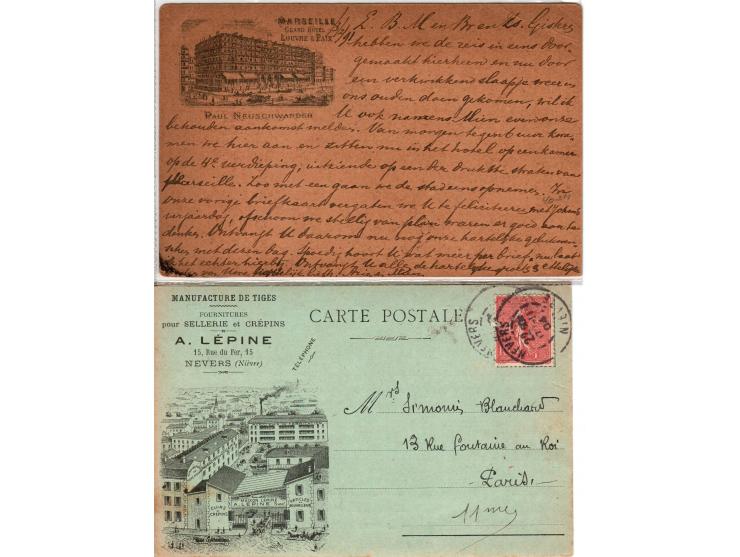 MARSEILLE
GRAND HÔTEL
LOUVRE & PAIX
PAUL NEUSCHWANDER
L. B. M en Br en Zs. Gisteren
hebben we de reis in eens door
gemaakt hierheen en nu door
een verkwikkend slaapje weer in
ons ouden doen gekomen, wil ik
U ook namens Mien even onze
behouden aankomst melden. Van morgen tegen 1 uur kwa-
men we hier aan en zitten nu in het hotel op een kamer
op de 4e verdieping, uitziende op een der drukste straten van
Marseille. Zoo met een gaan we de stad eens opnemen. In
onze vorige briefkaart vergaten we U te feliciteeren met
verjaardag, ofschoon we stellig van plan waren er goed aan te
denken. Ontvangt U daarom nu nog onze hartelijke gelukwen-
schen met deren dag. Spoedig hoort U wat meer per brief, nu laat
ik het echter hierbij. Ontvangt U alle de hartelijke groeten
van Uwe
MANUFACTURE DE TIGES
FOURNITURES
pour SELLERIE et CRÉPINS
A. LÉPINE
15, Rue du Fer, 15
NEVERS (Nièvre)
TÉLÉPHONE
CARTE POSTALE
NEVERS
Mrs Simonis Blanchard
13 Rue Fontaine au Roi
Paris.
11me
MAISON LEPINE
A. LEPINE Succr
CUIRS
&
CRÉPINS